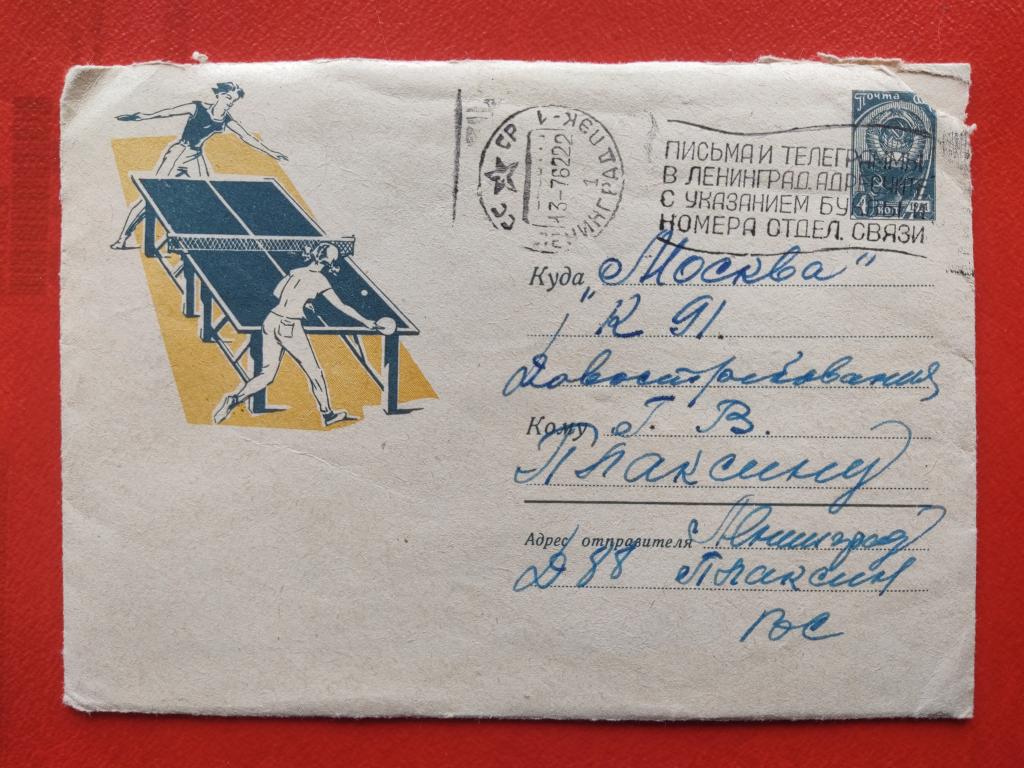 Почта
СССР
ЛЕНИНГРАД ПЖК-1
1
13-76222
ПИСЬМА И ТЕЛЕГРАММЫ
В ЛЕНИНГРАД АДРЕСУЙТЕ
С УКАЗАНИЕМ БУКВЫ И
НОМЕРА ОТДЕЛ. СВЯЗИ
4 коп 1961
Куда „Москва"
"К 91.
Довостребования
Кому Г. В.
Плаксину
Адрес отправителя Ленинград
Д 88 Плаксин